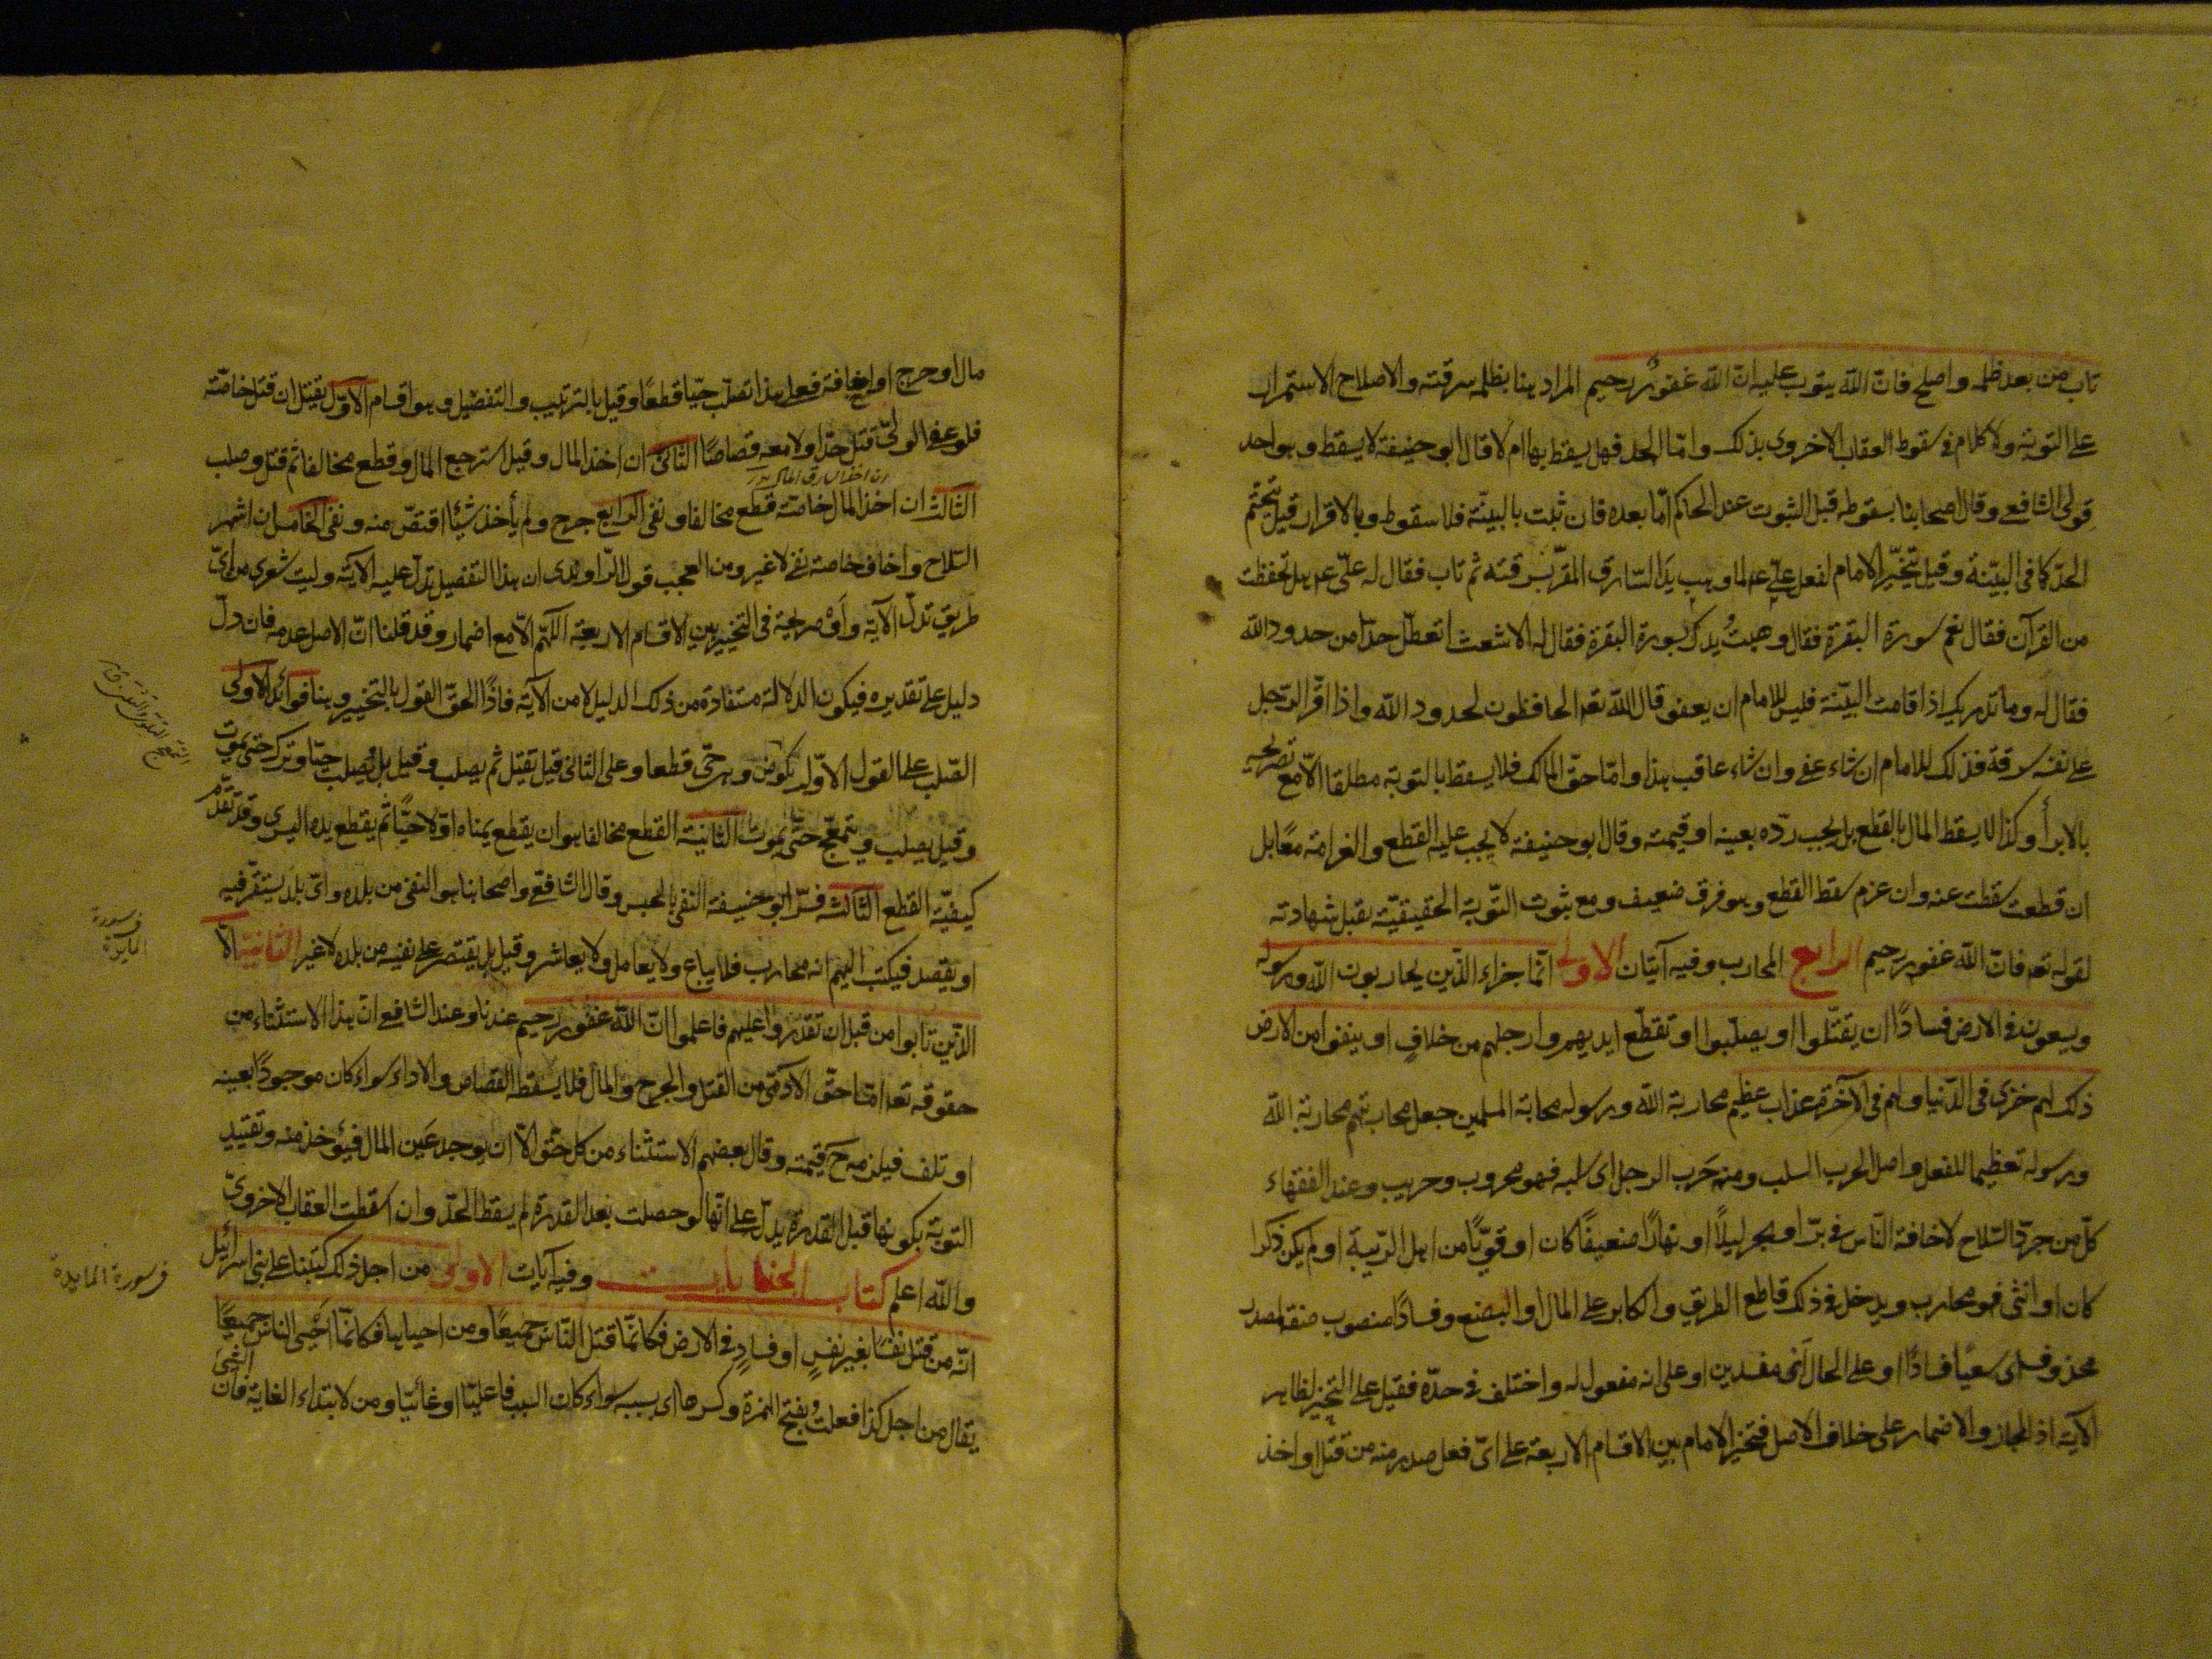 تاب من بعد ظلمه واصلح فانّ اللّه يتوب عليه انّ اللّه غفور رحيم المراد هنا بظلمه سرقته والاصلاح الاستمرار
على التوبة ولا كلام فى سقوط العقاب الاخروى بذلك وامّا الحد فهل يسقط بها ام لا قال ابو حنيفة لا يسقط وهو احد
قولى الشافعى وقال اصحابنا بسقوطه قبل الثبوت عند الحاكم امّا بعده فان ثبت بالبينّة فلا سقوط وبالاقرار قيل يتحتّم
الحدّ كما فى البيّنة وقيل يتخيّر الامام لفعل علىّ عم لما وهب يد السّارق المقرّ بسرقته ثم تاب فقال له علىّ عم هل تحفظت
من القرآن فقال نعم سورة البقرة فقال وهبتُ يدك بسورة البقرة فقال له الاشعث اتعطّل حدّا من حدود اللّه
فقال له وما تدريك اذا قامت البيّنة فليس للامام ان يعفو قال اللّه تعه الحافظون لحدود اللّه واذا اقرّ الرّجل
على نفسه سرقة فذلك للامام ان شاء عفى وان شاء عاقب هذا وامّا حقّ المالك فلا يسقط بالتوبة مطلقا الاّ مع تصريحه
بالابرأ وكذا لا يسقط المال بالقطع بل يجب ردّه بعينه او قيمته وقال ابو حنيفة لا يجب عليه القطع والغرامة معًا بل
ان قطعت سقطت عنه وان غرم سقط القطع وهو فرق ضعيف ومع ثبوت التّوبة الحقيقيّة تقبل شهادته
لقوله تعه فانّ اللّه غفور رحيم الرابع المحارب وفيه آيتان الاولى انّما جزاء الذّين يحاربون اللّه ورسوله
ويسعون فى الارض فسادًا ان يقتّلوا او يصلّبوا او تقطّع ايديهم وارجلهم من خلافٍ او ينفوا من الارض
ذلك لهم خزى فى الدّنيا ولهم فى الآخرة عذاب عظيم محاربة اللّه ورسوله محابة المسلمين جعل محاربتهم محاربة اللّه
ورسوله تعظيما للفعل واصل الحرب السلب ومنه حَرب الرجل اى سلبه فهو محروب وحريب وعند الفقهاء
كلّ من جرّد السّلاح لاخافة النّاس فى برّ او بحر ليلًا او نهارًا ضعيفًا كان او قويًّا من اهل الرّيبة او لم يكن ذكرا
كان او انثى فهو محارب ويدخل فى ذلك قاطع الطريق والمكابر على المال او البضع وفسادًا منصوب صفة مصدر
محذوف اى سعيًا فسادًا او على الحال اى مفسدين او على انه مفعول له واختلف فى حدّه فقيل على التخيير لظاهر
الآية اذ المجاز والاضمار على خلاف الاصل فتخيّر الامام بين الاقسام الاربعة على اىّ فعل صدر منه من قتل او اخذ
مال او جرح او اخافة فعل هذا تصلب حيّا قطعًا وقيل بالترتيب والتفصيل وهو اقسام الاوّل يقتل ان قتل خاصّة
فلو عفى الولىّ قتل حدّا ولا معه قصاصًا الثانى ان اخذ المال وقيل استرجع المال وقطع مخالفا ثم قتل وصلب
الثالث ان اخذ المال خاصّة قطع مخالفا ونفى الرابع جرح ولم يأخذ شيئا اقتصّ منه ونفى الخامس ان اشهر
السّلاح واخاف خاصة نفى لا غير ومن العجب قول الرّاوندى ان هذا التفصيل تدلّ عليه الآية وليت شعرى من اىّ
طريق تدلّ الآية و صريحة فى التخيير بين الاقسام الاربعة اللّهمّ الاّ مع اضمار وقد قلنا انّ الاصل عدمه فان دلّ
دليل على تقديره فيكون الدلالة مستفادة من ذلك الدليل لا من الآية فاذًا الحقّ القول بالتخيير وهنا فوائد الاولى
الصّلب على القول الاوّل يكون وهو حىّ قطعا وعلى الثانى قيل تقتل ثم يصلب وقيل بل يصلب حيّا وترك حتى يموت
وقيل يصلب و حتّى يموت الثانية القطع مخالفا هو ان يقطع يمناه اوّلا حيًّا ثم يقطع يده اليسرى وقد تقدّم
كيفيّة القطع الثالثة فسّر ابو حنيفة النفى بالحبس وقال الشافعى واصحابنا هو النفى من بلده واىّ بلد يستقرّ فيه
او يقصد فيكتب اليهم انه محارب فلا يباع ولا يعامل ولا يعاشر وقيل بل يقتصر على نفيه من بلده لا غير الثانية الاّ
الذّين تابوا من قبل ان تقدروا عليهم فاعلموا انّ اللّه غفور رحيم عندنا وعند الشافعى انّ هذا الاستثناء من
حقوقه تعه امّا حقّ الآدمّى من القتل والجرح والمال فلا يسقط القصاص والاداء سواء كان موجودًا بعينه
او تلف فيلزمه ح قيمته وقال بعضهم الاستثناء من كل حقّ الاّ ان يوجد عَين المال فيؤخذ منه وتقييد
التوبة بكونها قبل القدرة يدلّ على انّها لو حصلت بعد القدرة لم يسقط الحدّ وان اسقطت العقاب الاخروىّ
واللّه اعلم كتاب الجنايات وفيه آيات الاولى من اجل ذلك كتبنا على بنى اسرائيل
انّه من قتل نفسًا بغير نفسٍ او فسادٍ فى الارض فكانّما قتل النّاس جميعًا ومن احياها فكانّما احيى الناس جميعًا
يقال من اجل كذا فعلت بفتح الهمزة وكسرها اى بسببه سواء كان السبب فاعليّا او غائيّا ومن لابتداء الغاية فان
الشئ
فى سورة
المايدة
فى سورة المايدة